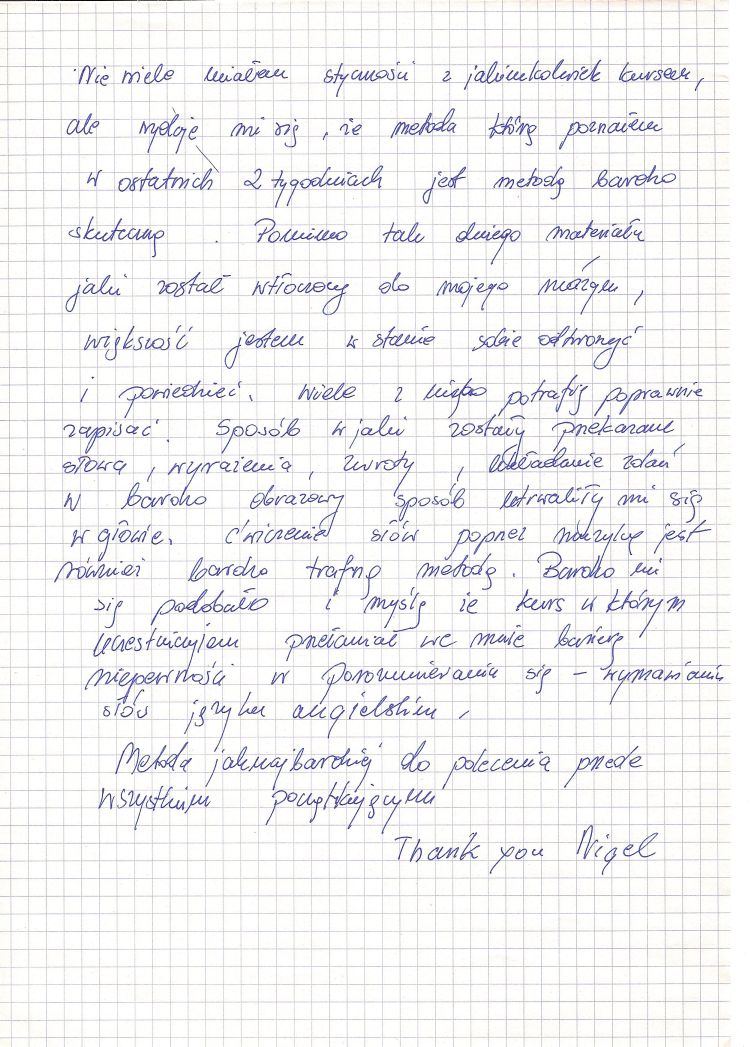 Nie wiele miałem styczności z jakimkolwiek kursem,
ale wydaje mi się, że metoda którą poznałem
w ostatnich 2 tygodniach jest metodą bardzo
skuteczną. Pomimo tak dużego materiału
jaki został wtłoczony do mojego mózgu,
większość jestem w stanie sobie odtworzyć
i powiedzieć. Wiele z nich potrafię poprawnie
zapisać. Sposób w jaki zostały przekazane
słowa, wyrażenia, zwroty, układanie zdań
w bardzo obrazowy sposób utrwaliły mi się
w głowie. Ćwiczenie słów poprzez muzykę jest
również bardzo trafną metodą. Bardzo mi
się podobało i myślę że kurs w którym
uczestniczyłem przełamał we mnie barierę
niepewności w porozumiewaniu się – wymawianiu
słów języku angielskim.
Metoda jaknajbardziej do polecenia przede
wszystkim początkującym
Thank you Nigel